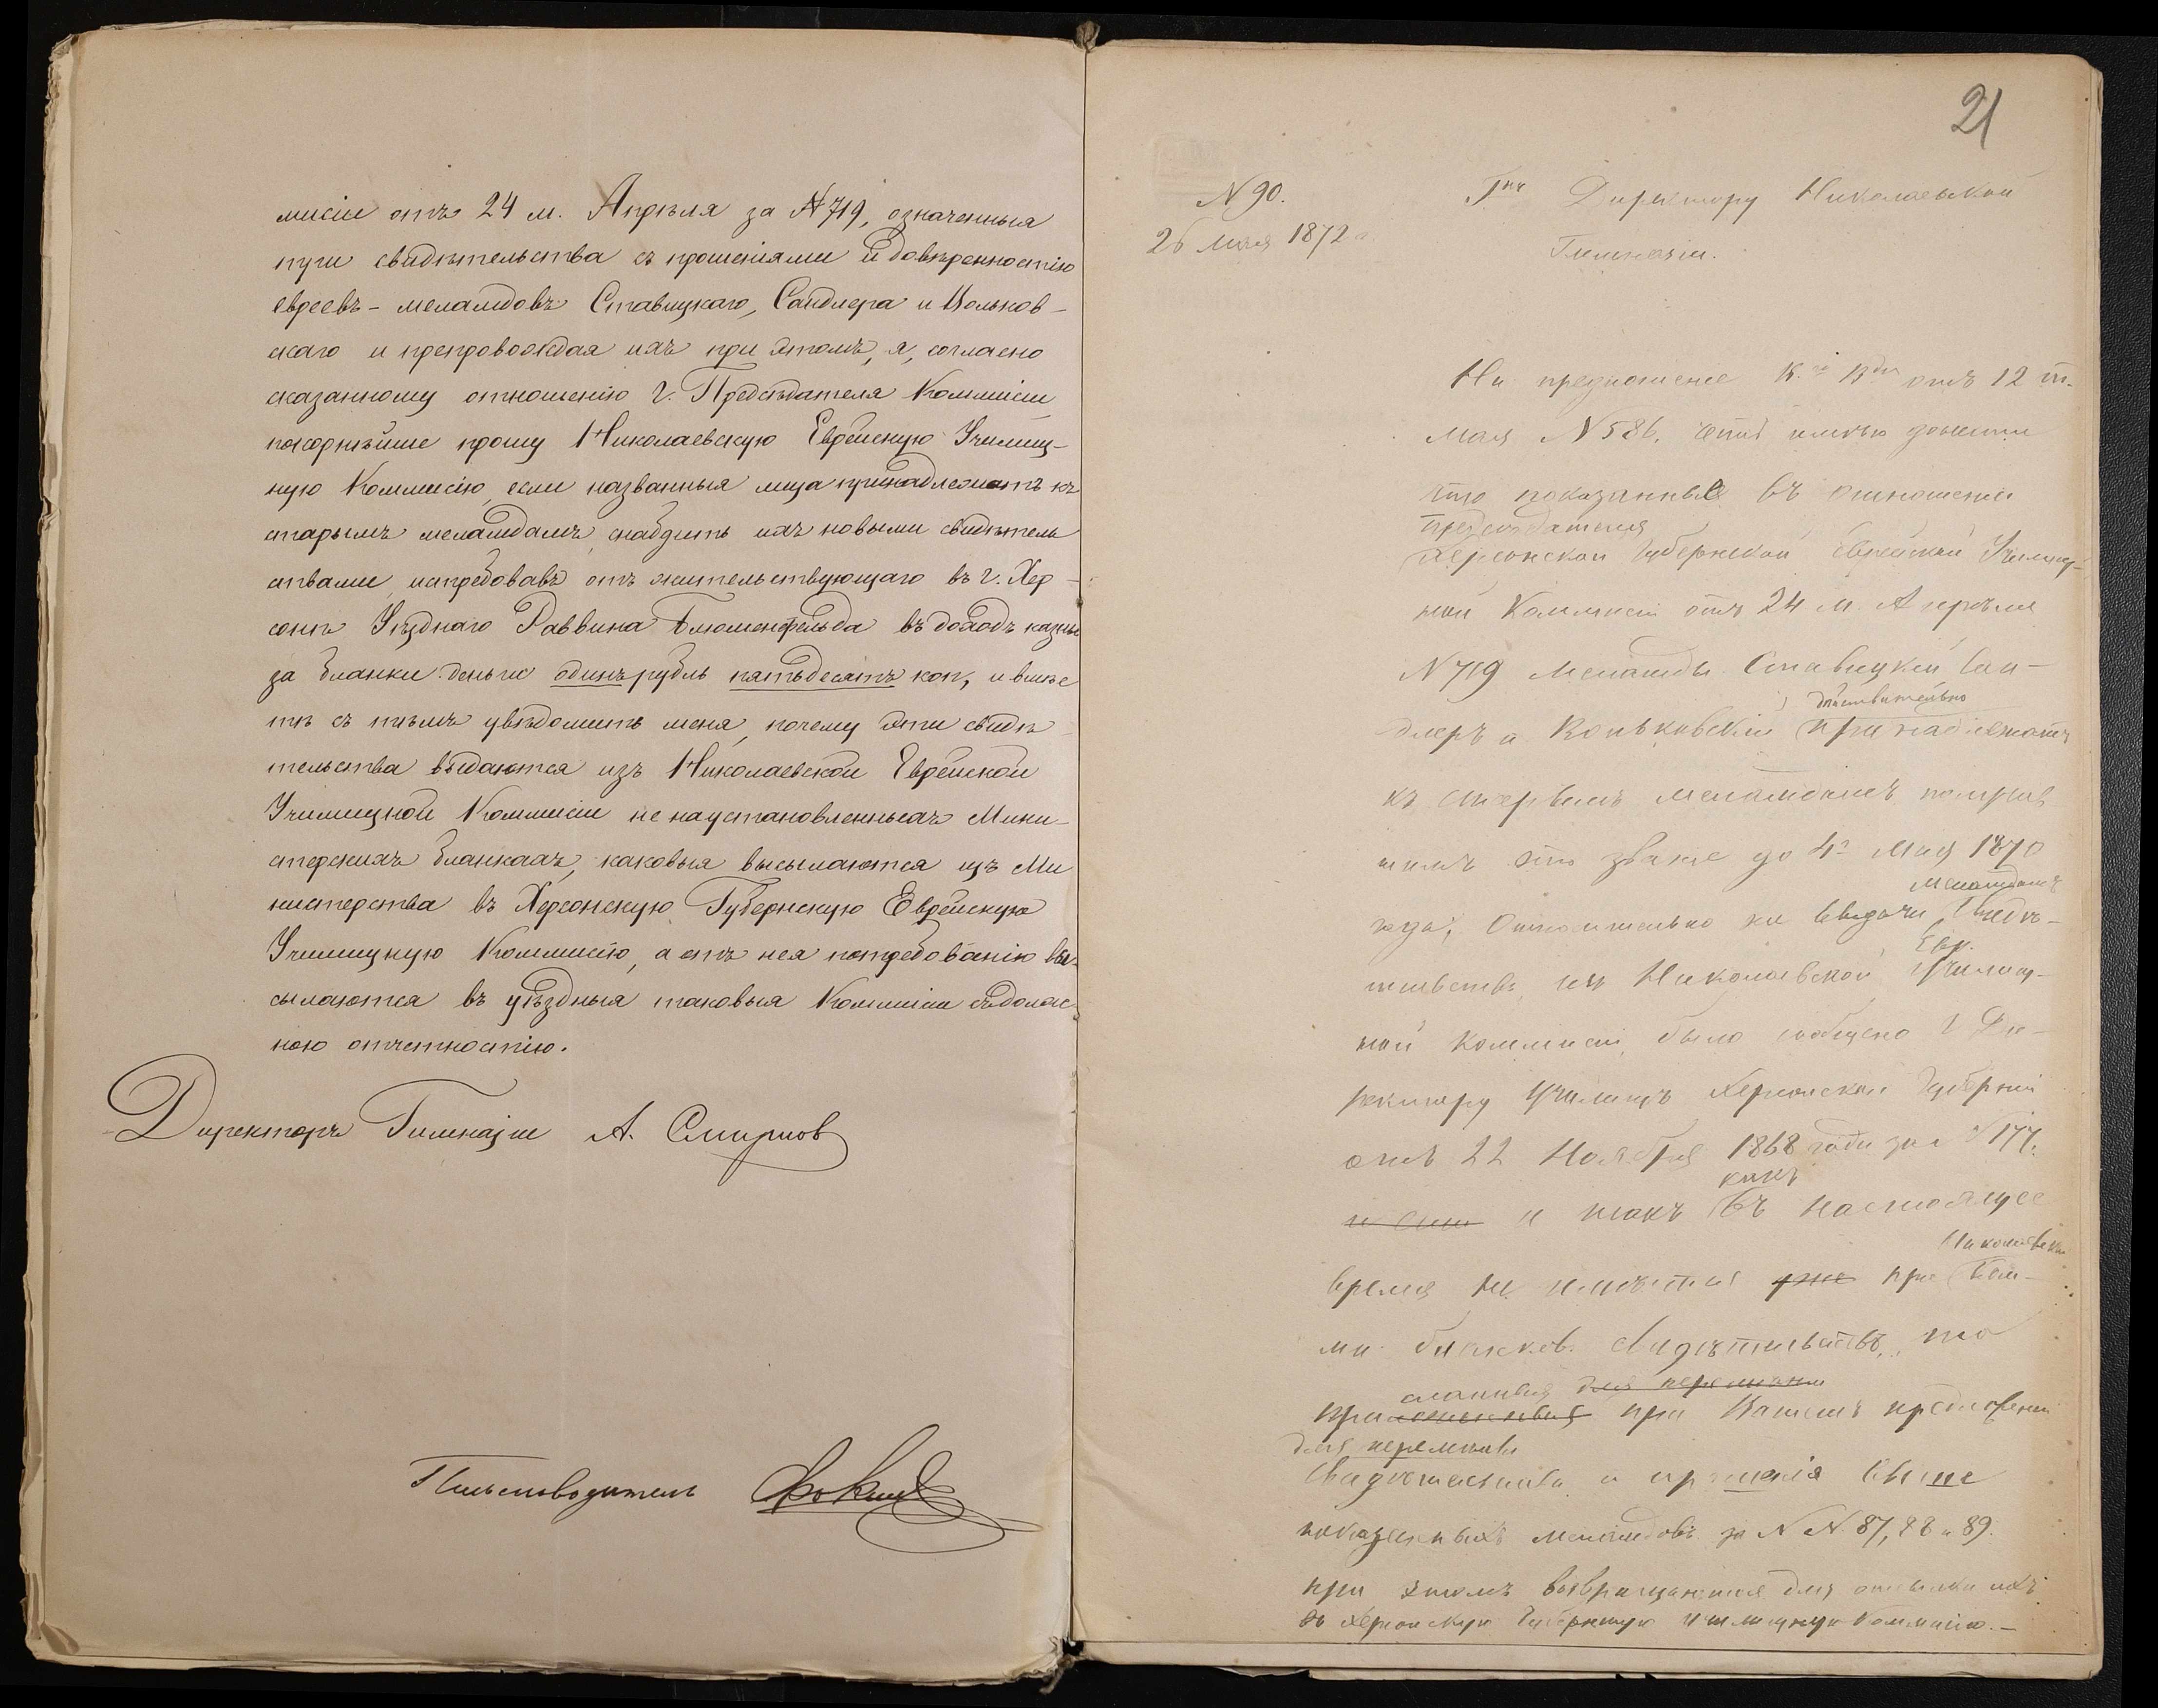 мисіи отъ 24 м. Апрѣля за №719, означенныя
при свидѣтельства съ прошеніями и довѣренностію
евреевъ - меламдовъ Ставицкаго, Сандлера и Цольков-
скаго и препровождая ихъ при этомъ, я, согласно
сказанному отношенію г. Предсѣдателя Коммисіи
покорнѣйше прошу Николаевскую Еврейскую Училищ-
ную Коммисію, если названныя лица принадлежатъ къ
старымъ меламдамъ, снабдить ихъ новыми свидѣтель
ствами, истребовавъ отъ жительствующаго въ г. Хер-
сонѣ Уѣзднаго Раввина Блюменфельда въ доходъ казны
за бланки деньги одинъ рубль пятьдесятъ коп, и вмѣс
тѣ съ тѣмъ увѣдомить меня, почему эти свидѣ
тельства выдаются изъ Николаевской Еврейской
Училищной Коммисіи не на установленныхъ Мини-
стерскихъ бланкахъ, каковыя высылаются изъ Ми
нистерства въ Херсонскую Губернскую Еврейскую
Училищную Коммисію, а отъ нея по требованію вы-
сылаются въ уѣздныя таковыя Коммисіи съ долж-
ною отчетностію.
Директоръ Гимназіи А. Смирнов
Письмоводитель
21
N 90.
26 Мая 1872 г.
Гну Директору Николаевской
Гимназіи.
На предложеніе отъ 12 т.
мая N 586, имѣю донести
что показанные въ отношеніи
предсѣдателя
Херсонской Губернской Еврейской Училищ-
ной Коммисіи отъ 24 м. Апрѣля
N 719 Меламды Ставицкій Сан-
дѣйствительно
длеръ и Коньковскій принадлежатъ
къ меламдамъ
это званіе до 4го Мая 1870
меламдамъ
года; Относительно же выдачи свидѣ-
Евр.
тельствъ изъ Николаевской Училищ-
ной Коммисіи, было сообщено г Ди-
ректору Училищъ Херсонской Губерніи
отъ 22 Ноября 1868 года за N 177.
какъ
и такъ въ настоящее
Николаевской
время не имѣется уже при Ком-
ми бланков. свидѣтельствъ, то
сланныя для перемѣны
приложенныя при Вашемъ предложеніи
для перемѣны
свидѣтельства и прошенія выше
показанныхъ меламдовъ за N N 87, 88 и 89.
при этомъ возвращаются для отсылки ихъ
въ Херсонскую Губернскую Училищную Коммисію.-